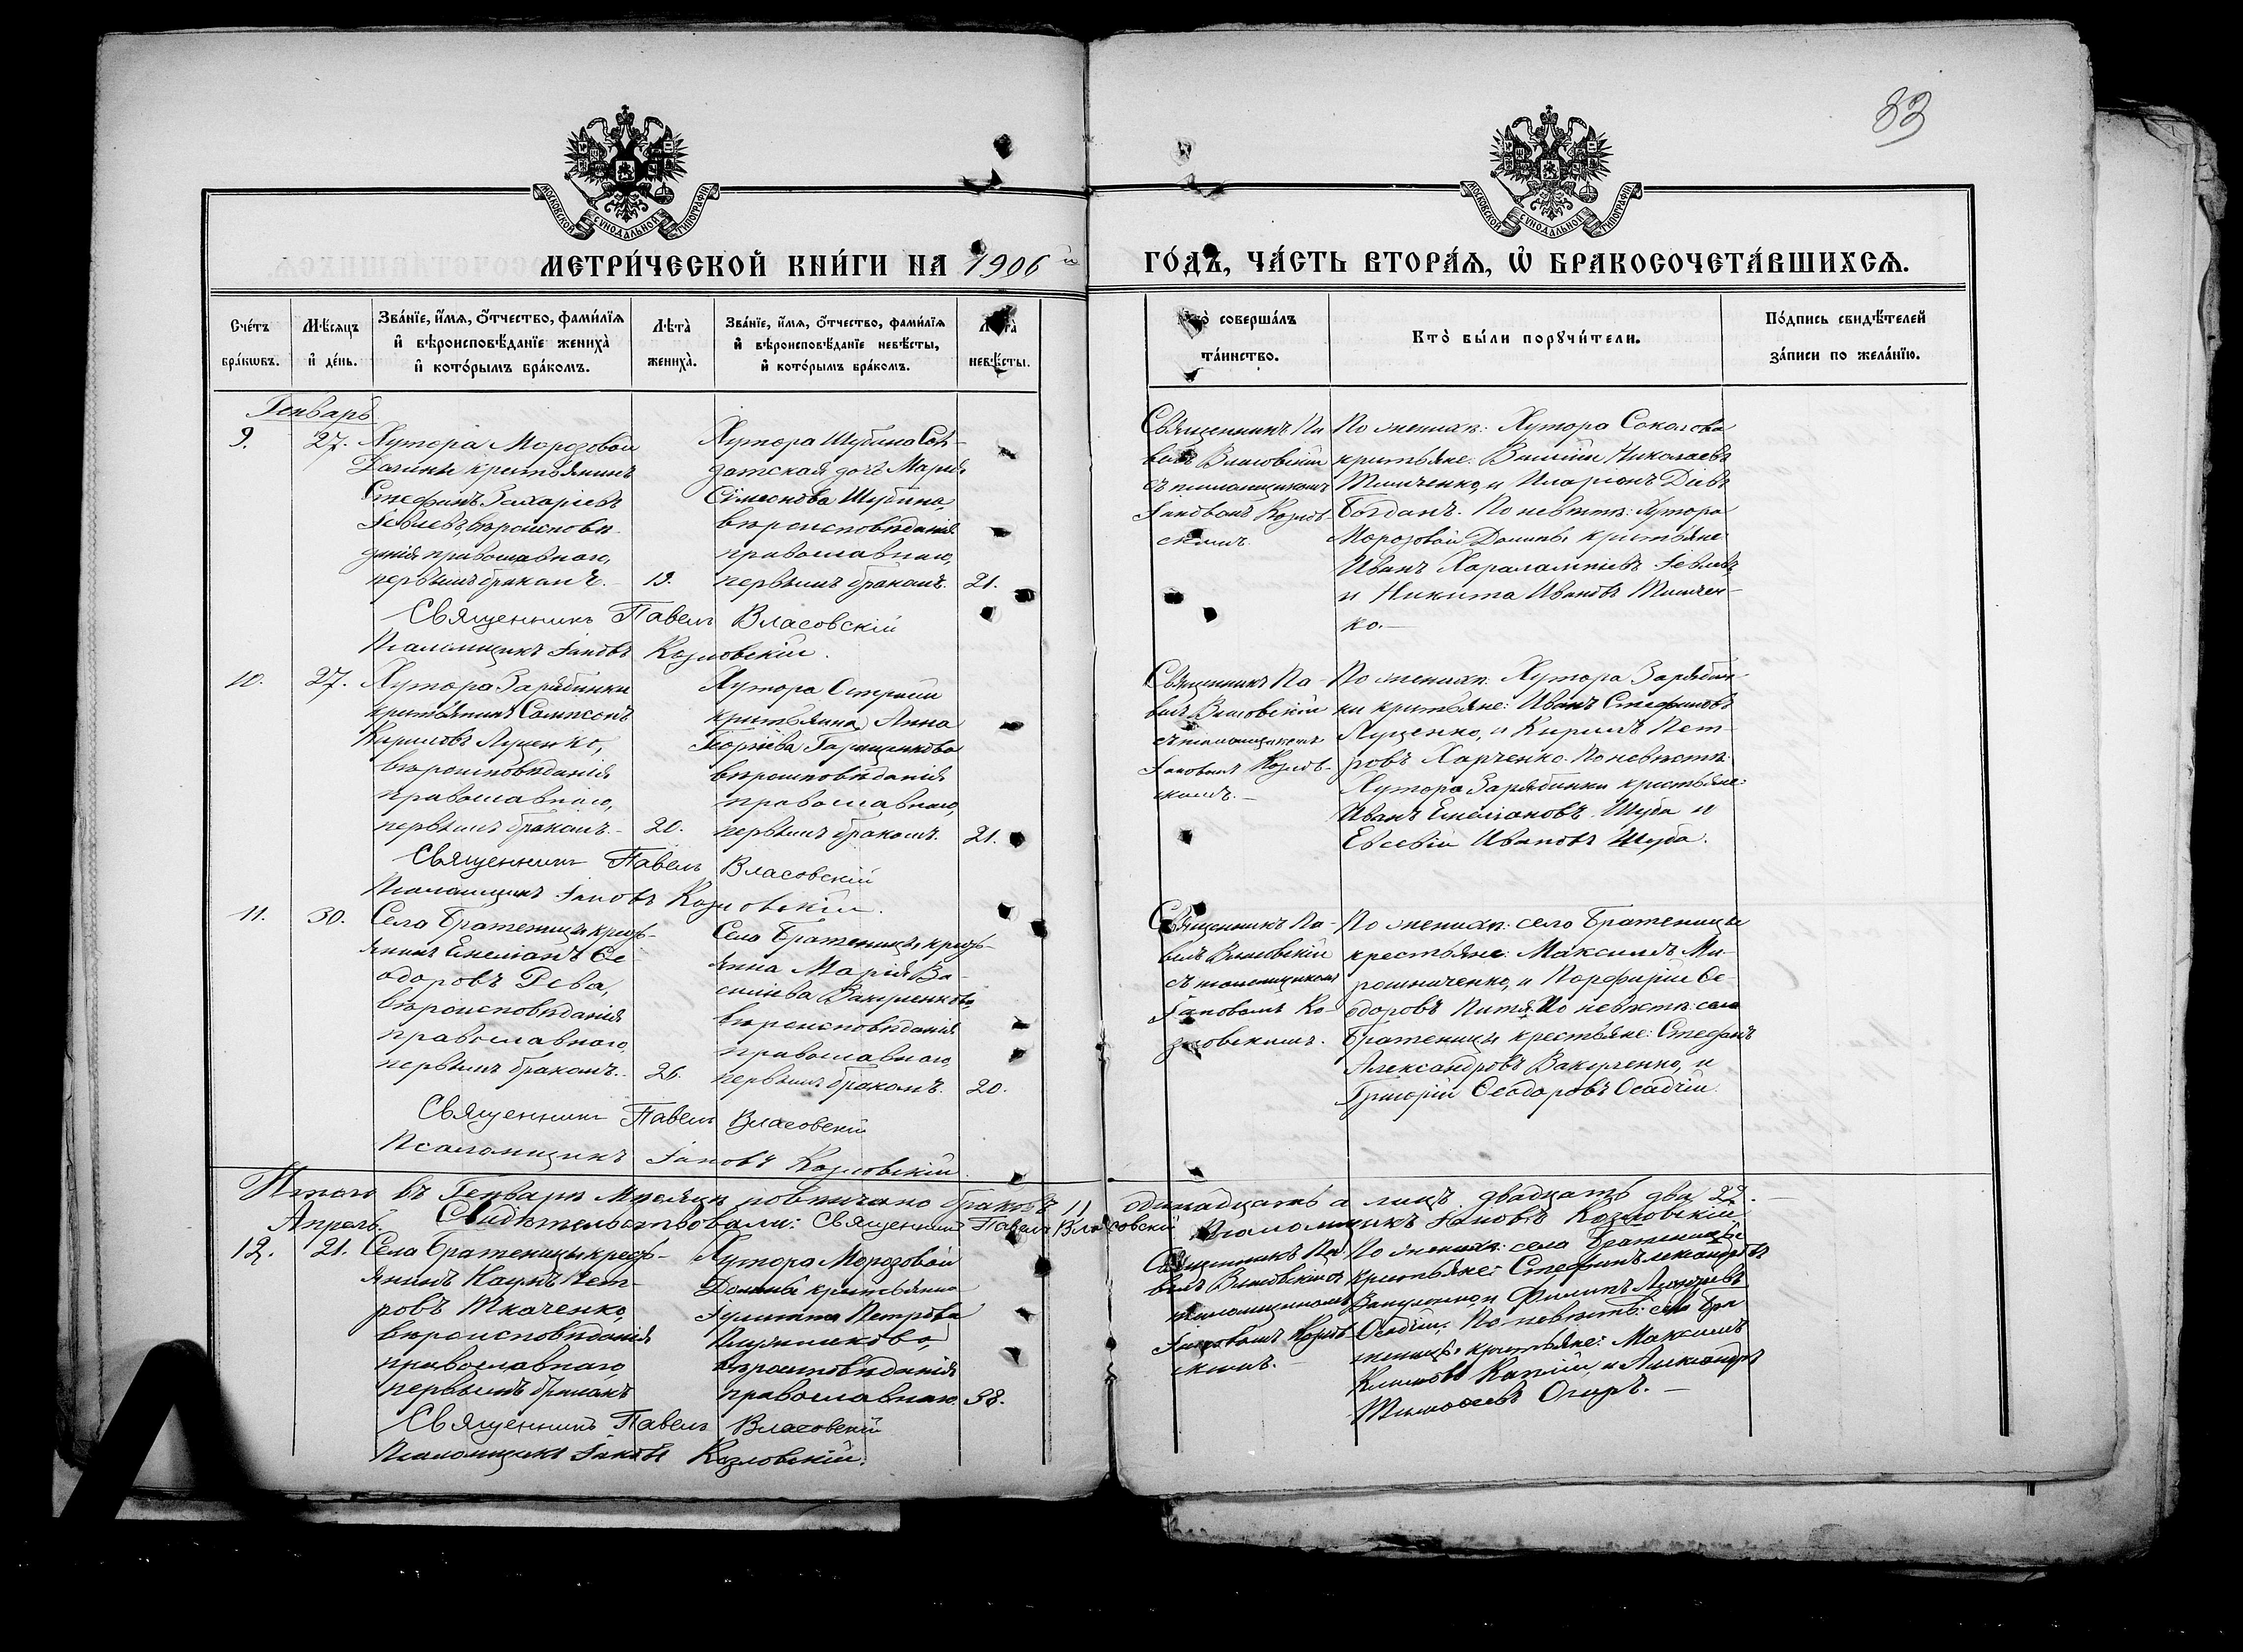 83
МОСКОВСКОЙ СУНОДАЛЬНОЙ ТИПОГРАФІИ
МОСКОВСКОЙ СУНОДАЛЬНОЙ ТИПОГРАФІИ
МЕТРИ́ЧЕСКОЙ КНИ́ГИ НА 1906й ГО́ДЪ, ЧА́СТЬ ВТОРА́Ѧ, Ѡ҆ БРАКОСОЧЕТА́ВШИХСѦ.
Сче́тъ бра́кѡвъ.
Мѣ́сяцъ и҆ де́нь.
Зва́нїе, и҆́мѧ, ѻ҆́тчество, фами́лїѧ и҆ вѣроисповѣ́данїе жениха̀ и҆ кото́рымъ бра́комъ.
Лѣта̀ жениха̀.
Зва́нїе, и҆́мѧ, ѻ҆́тчество, фами́лїѧ и҆ вѣроисповѣ́данїе невѣ́сты, и҆ кото́рымъ бра́комъ.
Лѣта̀ невѣ́сты.
Кто̀ соверша́лъ та́инство.
Кто̀ бы́ли порꙋчи́тели.
По́дпись свидѣ́телей за́писи по жела́нїю.
Генварь
9.
27.
Хутора Морозовой
Долины крестьянинъ
Стефанъ Захаріевъ
Іевлевъ, вѣроисповѣ-
данія православнаго,
первымъ бракомъ.
19.
Хутора Шубина Сол-
датская дочь Марія
Сѵмеонова Шубина,
вѣроисповѣданія
православнаго,
первымъ бракомъ.
21.
Священникъ Па-
велъ Власовскій
съ псаломщикомъ
Іаковомъ Козлов-
скимъ.
По женихѣ: Хутора Соколова
крестьяне: Василій Николаевъ
Тимченко, и Иларіонъ Діевъ
Богданъ. По невѣстѣ: Хутора
Морозовой Долины крестьяне
Иванъ Харалампіевъ Іевлевъ,
и Никита Ивановъ Тимчен-
ко.
Священникъ Павелъ Власовскій
Псаломщикъ Іаковъ Козловскій.
10.
27.
Хутора Зарябинки
крестьянинъ Сампсонъ
Кириловъ Луценко,
вѣроисповѣданія
православнаго,
первымъ бракомъ.
20.
Хутора
крестьянка Анна
Георгіева
вѣроисповѣданія
православнаго,
первымъ бракомъ.
21.
Священникъ Па-
велъ Власовскій
съ псаломщикомъ
Іаковомъ Козлов-
скимъ.
По женихѣ: Хутора Зарябин-
ки крестьяне: Иванъ Стефановъ
Луценко, и Кирилъ Пет-
ровъ Харченко. По невѣстѣ:
Хутора Зарябинки крестьяне:
Иванъ Емеліановъ Шуба и
Евсевій Ивановъ Шуба.
Священникъ Павелъ Власовскій
Псаломщикъ Іаковъ Козловскій.
11.
30.
Села Братеницы крест-
янинъ Емеліанъ Ѳе-
одоровъ Рева,
вѣроисповѣданія
православнаго,
первымъ бракомъ.
26.
Села Братеницы, крест-
янка Марія Ва-
силіева Вакуленкова,
вѣроисповѣданія
православнаго,
первымъ бракомъ.
20.
Священникъ Па-
велъ Власовскій
съ псаломщикомъ
Іаковомъ Ко-
зловскимъ.
По женихѣ: село Братеницы
крестьяне: Максимъ Ми-
рошниченко, и Порфирій Ѳе-
одоровъ По невѣстѣ: села
Братеницы крестьяне: Стефанъ
Александровъ Вакуленко, и
Григорій Ѳеодоровъ Осадчій.
Священникъ Павелъ Власовскій
Псаломщикъ Іаковъ Козловскій.
Итого въ Генварѣ Мѣсяцѣ повѣнчано браковъ 11 одинадцать а лицъ двадцать два 22.
Свидѣтельствовали: Священникъ Павелъ Власовскій Псаломщикъ Іаковъ Козловскій
Апрель.
12.
21.
Села Братеницы крест-
янинъ Наумъ Пет-
ровъ Ткаченко,
вѣроисповѣданія
православнаго,
первымъ бракомъ
Хутора Морозовой
Долины крестьянка
Іулитта Петрова
вѣроисповѣданія
православнаго.
38.
Священникъ Па-
велъ Власовскій съ
псаломщикомъ
Іаковомъ Козлов-
скимъ.
По женихѣ: села Братеницы
крестьяне: Стефанъ Александровъ
Вакуленко, и Филипъ
Осадчій; По невѣстѣ: села Бра-
теницы, крестьяне: Максимъ
Климовъ и Александръ
Тимоѳеевъ Огирь.
Священникъ Павелъ Власовскій
Псаломщикъ Іаковъ Козловскій.